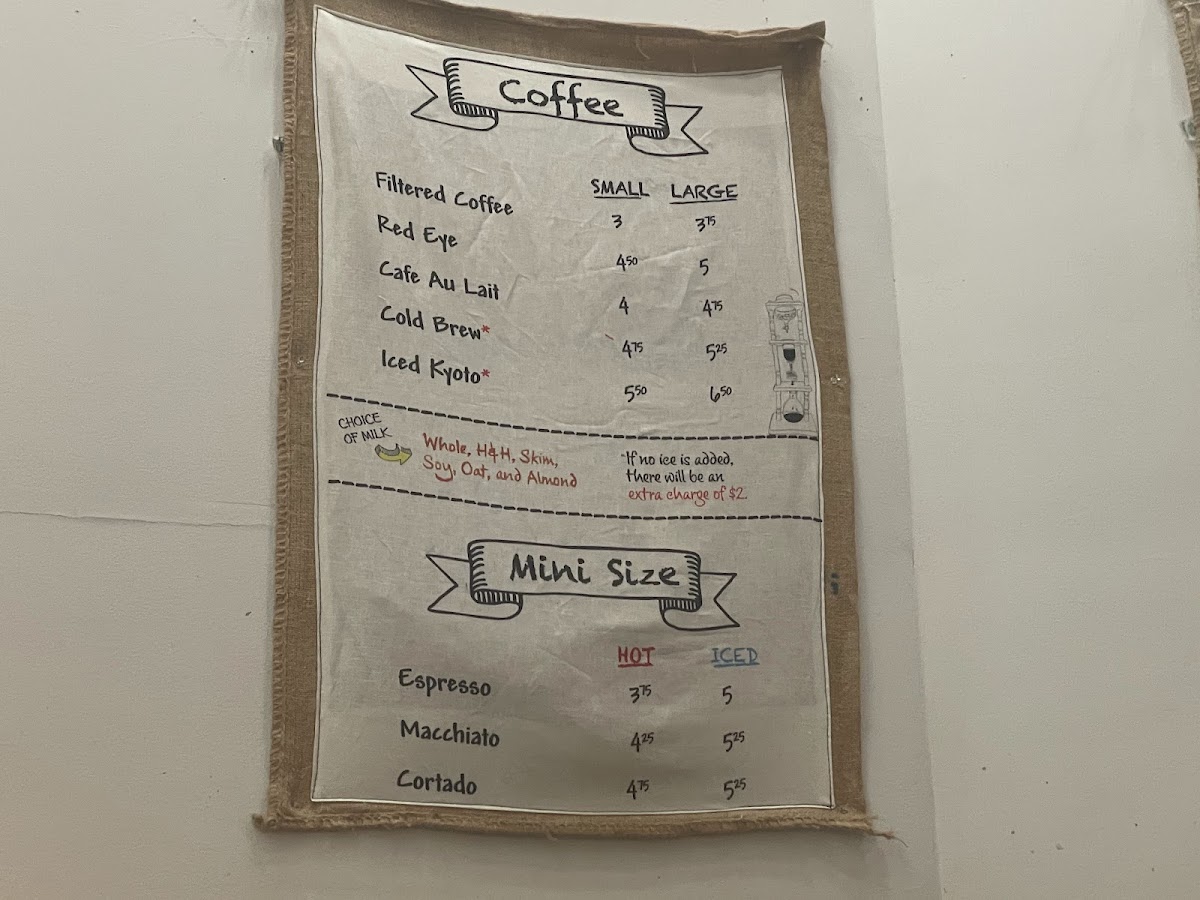 Coffee
SMALL LARGE
Filtered Coffee 3 3⁷⁵
Red Eye 4⁵⁰ 5
Cafe Au Lait 4 4⁷⁵
Cold Brew* 4⁷⁵ 5²⁵
Iced Kyoto* 5⁵⁰ 6⁵⁰
CHOICE
OF MILK
Whole, H&H, Skim,
Soy, Oat, and Almond
*If no ice is added,
there will be an
extra charge of $2.
Mini Size
HOT ICED
Espresso 3⁷⁵ 5
Macchiato 4²⁵ 5²⁵
Cortado 4⁷⁵ 5²⁵